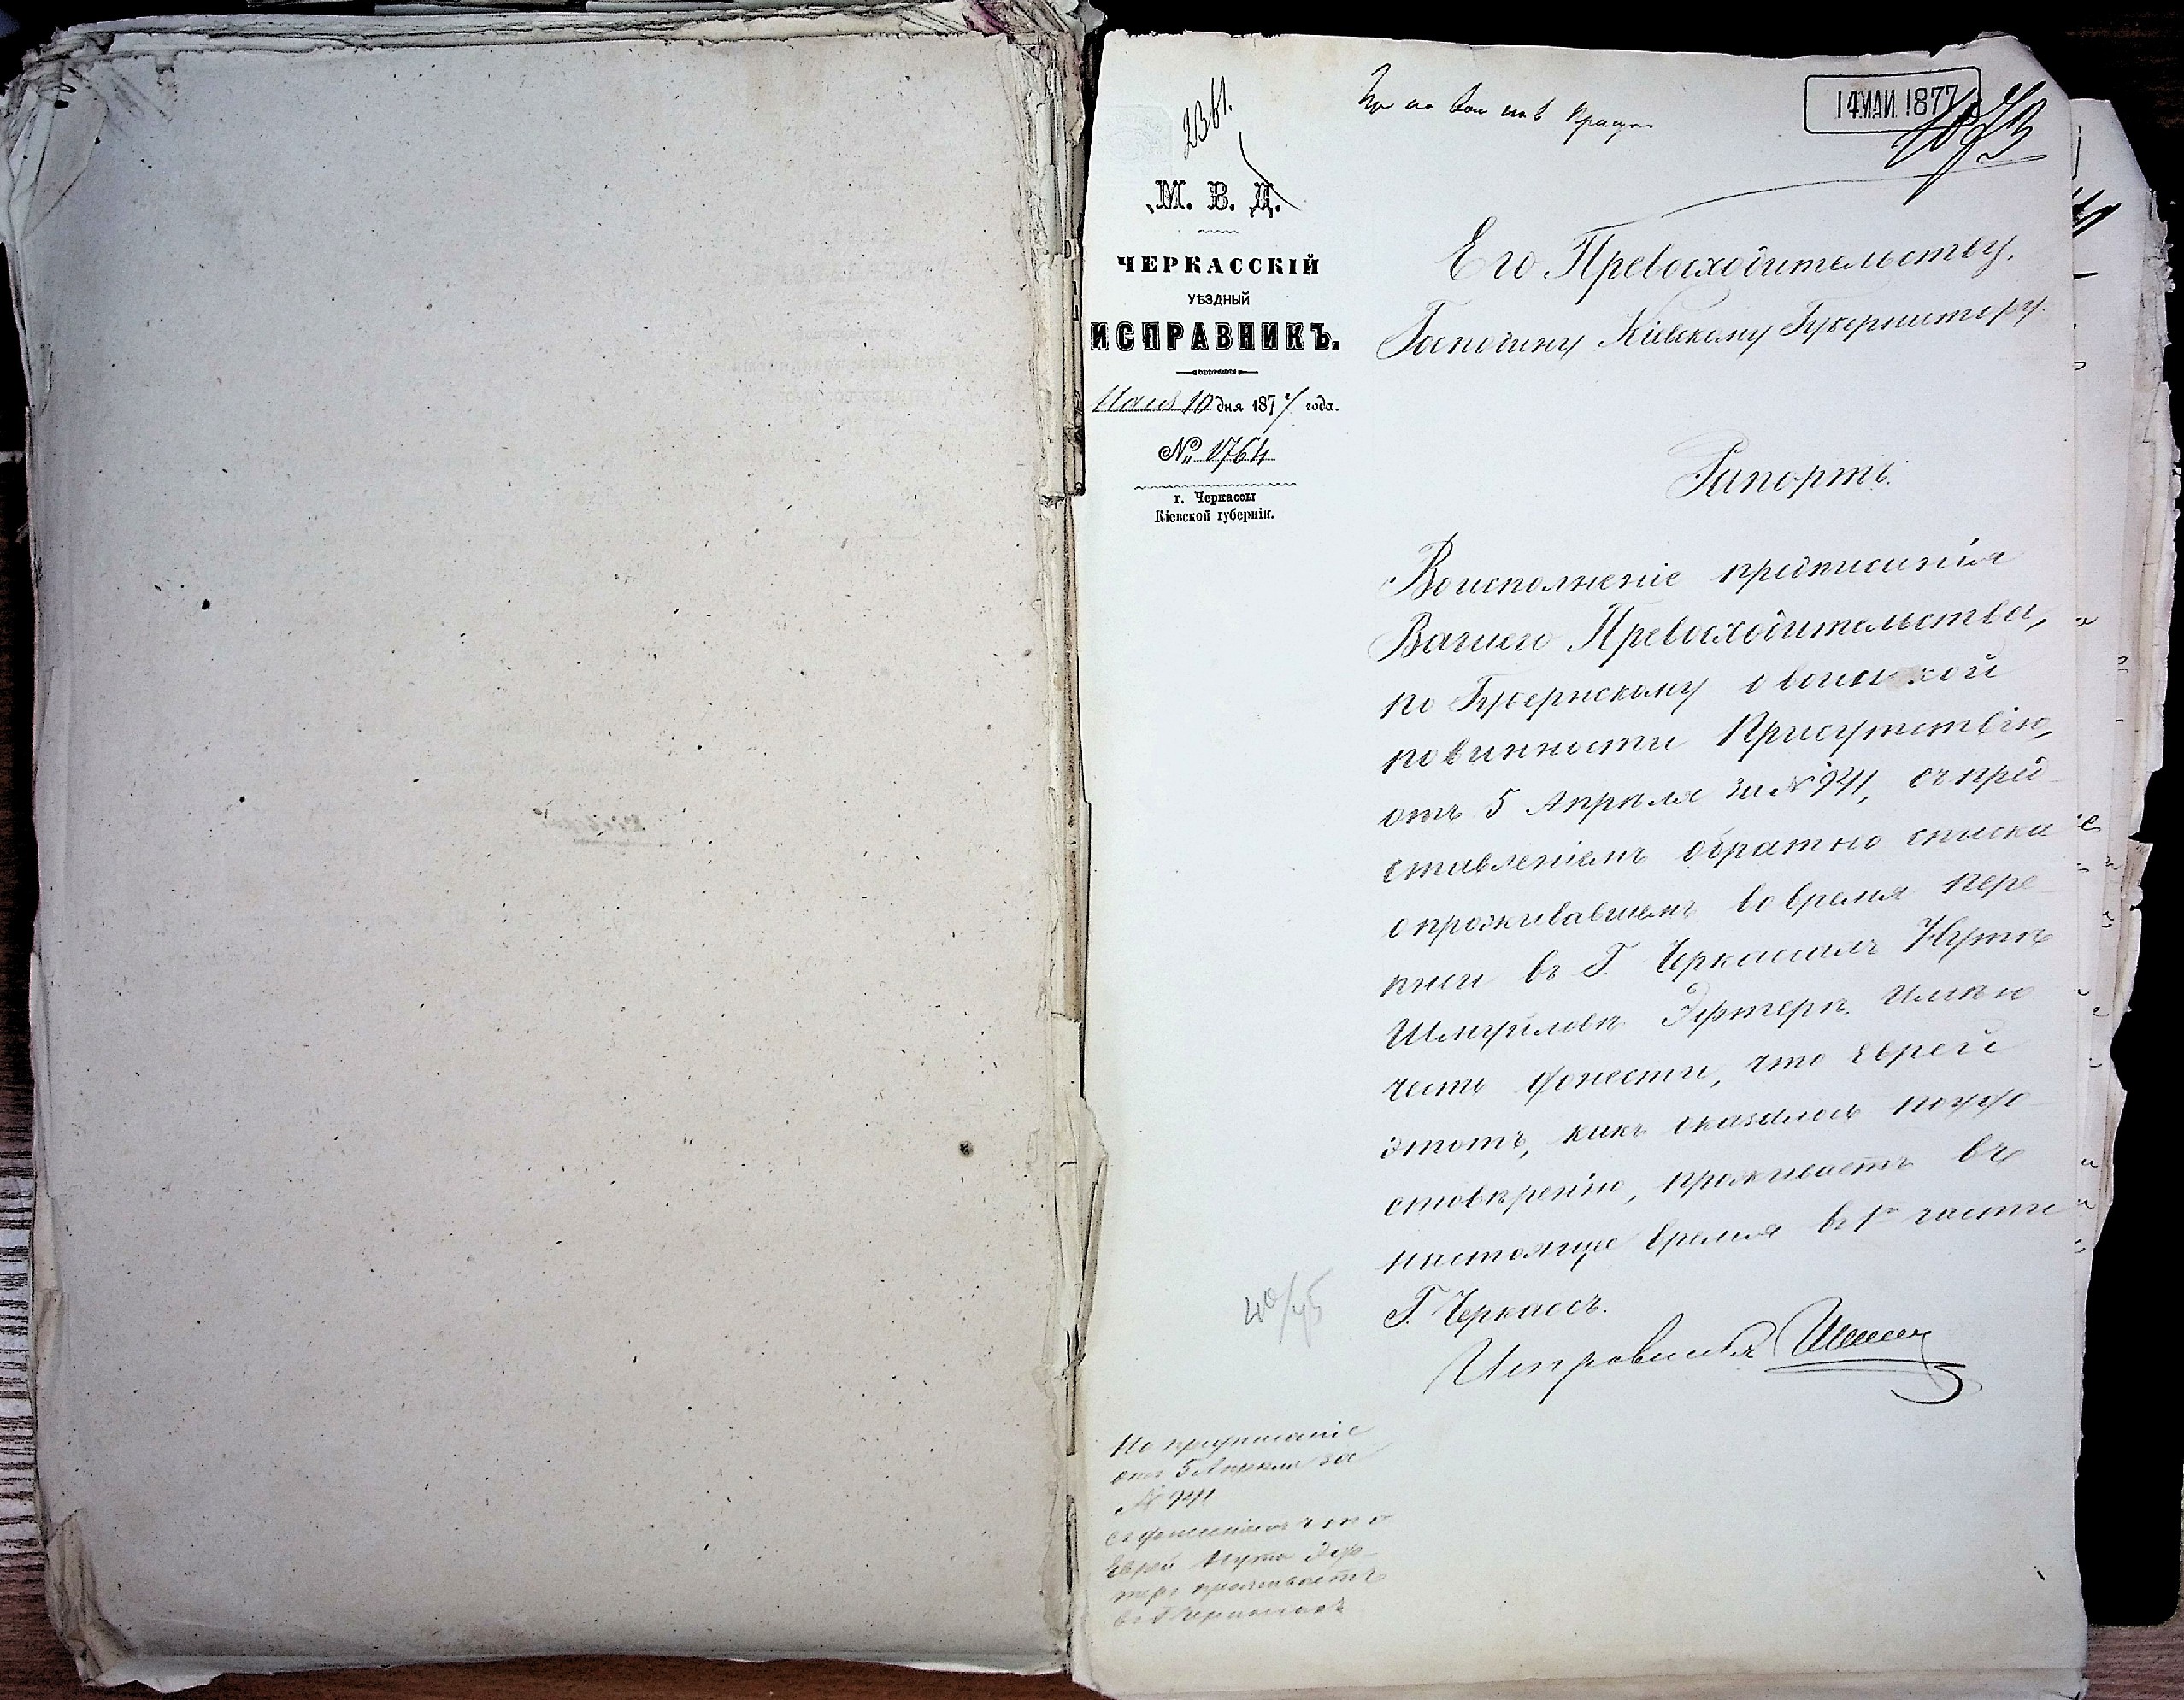 2361.
14 МАЙ 1877
1073
М. В. Д.
ЧЕРКАССКІЙ
УѢЗДНЫЙ
ИСПРАВНИКЪ.
Мая 10 дня 1877 года.
№ 1764
г. Черкассы
Кіевской губерніи.
Его Превосходительству,
Господину Кіевскому Губернатору.
Рапортъ.
Воисполненіе предписанія
Вашего Превосходительства,
по Губернскому о воинской
повинности Присутствію,
отъ 5 Апрѣля за №941, съ пред-
ставленіемъ обратно списка
о проживавшемъ во время пере-
писи въ Г. Черкассахъ Нутѣ
Шмуйловѣ Эфтеръ. Имѣю
честь донести, что еврей
этотъ, какъ оказалось по удо-
стовѣренію, проживаетъ въ
настоящее время въ 1й части
Г. Черкассъ.
Исправникъ
40/45
На предписаніе
отъ 5 Апрѣля за
№ 941
съ донесеніемъ что
Еврей Нута Эф-
теръ проживаетъ
въ Г. Черкассахъ